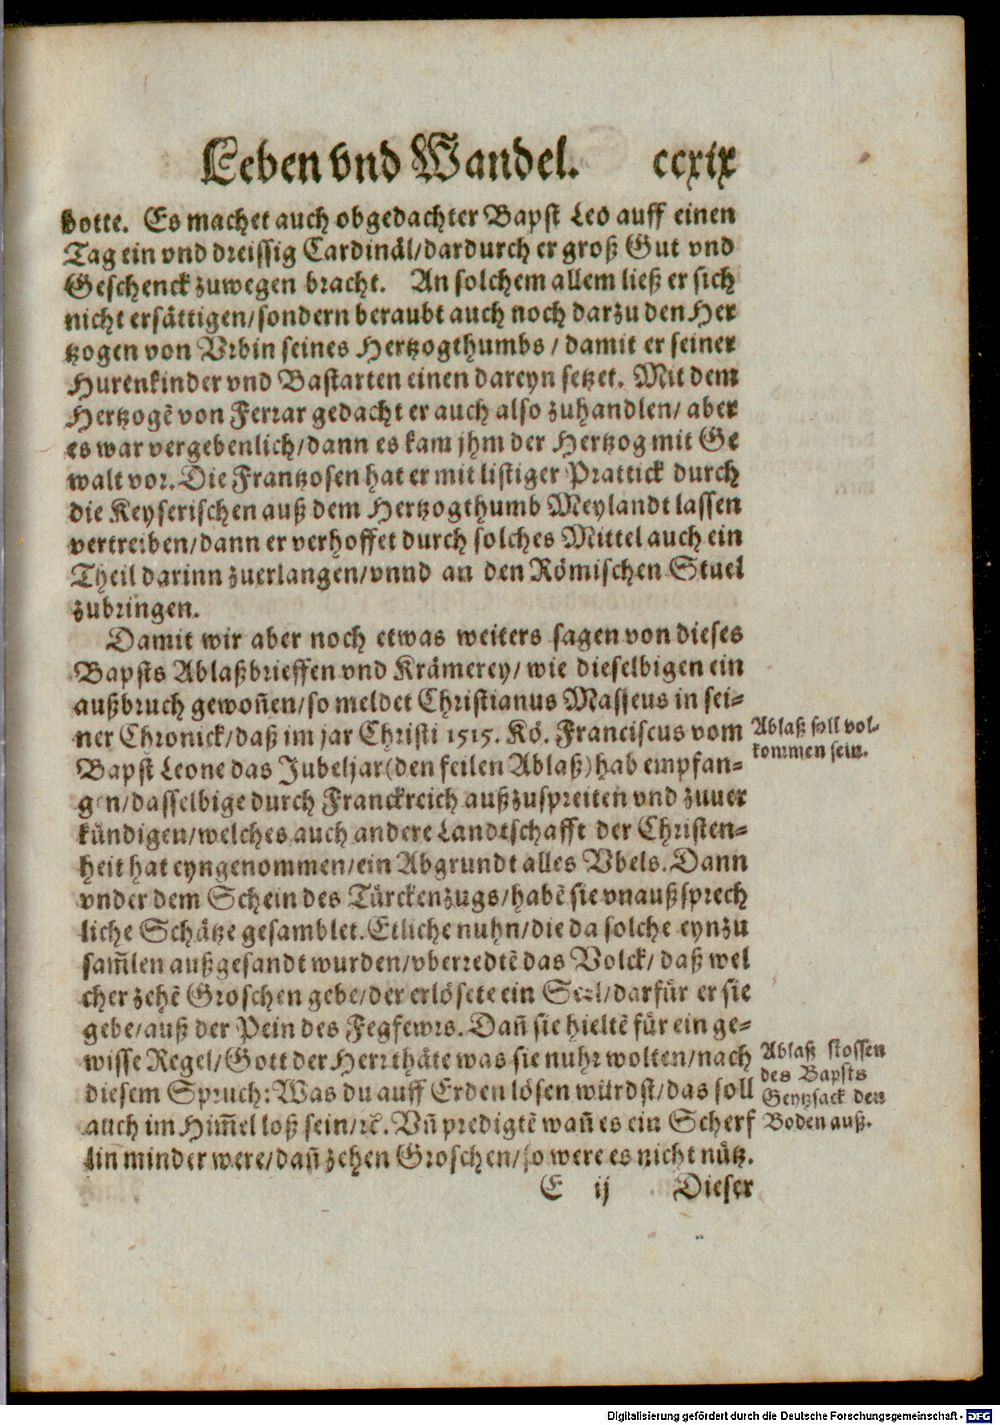 Leben vnd Wandel. ccxix
botte. Es machet auch obgedachter Bapst Leo auff einen
Tag ein vnd dreissig Cardinäl/dardurch er groß Gut vnd
Geschenck zuwegen bracht. An solchem allem ließ er sich
nicht ersättigen/sondern beraubt auch noch darzu den Her
tzogen von Vrbin seines Hertzogthumbs/damit er seiner
Hurenkinder vnd Bastarten einen dareyn setzet. Mit dem
Hertzogē von Ferrar gedacht er auch also zuhandlen/aber
es war vergebenlich/dann es kam jhm der Hertzog mit Ge
walt vor. Die Frantzosen hat er mit listiger Prattick durch
die Keyserischen auß dem Hertzogthumb Meylandt lassen
vertreiben/dann er verhoffet durch solches Mittel auch ein
Theil darinn zuerlangen/vnnd an den Römischen Stuel
zubringen.
Damit wir aber noch etwas weiters sagen von dieses
Bapsts Ablaßbrieffen vnd Krämerey/wie dieselbigen ein
außbruch gewoñen/so meldet Christianus Masseus in sei=
ner Chronick/daß im jar Christi 1515. Kö. Franciscus vom
Bapst Leone das Jubeljar(den feilen Ablaß)hab empfan=
gen/dasselbige durch Franckreich außzuspreiten vnd zuuer
kündigen/welches auch andere Landtschafft der Christen=
heit hat eyngenommen/ein Abgrundt alles Vbels. Dann
vnder dem Schein des Türckenzugs/habē sie vnaußsprech
liche Schätze gesamblet. Etliche nuhn/die da solche eynzu
sam̃len außgesandt wurden/vberredtē das Volck/daß wel
cher zehē Groschen gebe/der erlösete ein Seel/darfür er sie
gebe/auß der Pein des Fegfewrs. Dañ sie hieltē für ein ge=
wisse Regel/Gott der Herr thäte was sie nuhr wolten/nach
diesem Spruch: Was du auff Erden lösen würdst/das soll
auch im Him̃el loß sein/ꝛc̃. Vñ predigtē wañ es ein Scherf
lin minder were/dañ zehen Groschen/so were es nicht nütz.
E ij Dieser
Ablaß soll vol-
kommen sein.
Ablaß stossen
des Bapsts
Geytzsack den
Boden auß.
Digitalisierung gefördert durch die Deutsche Forschungsgemeinschaft - DFG